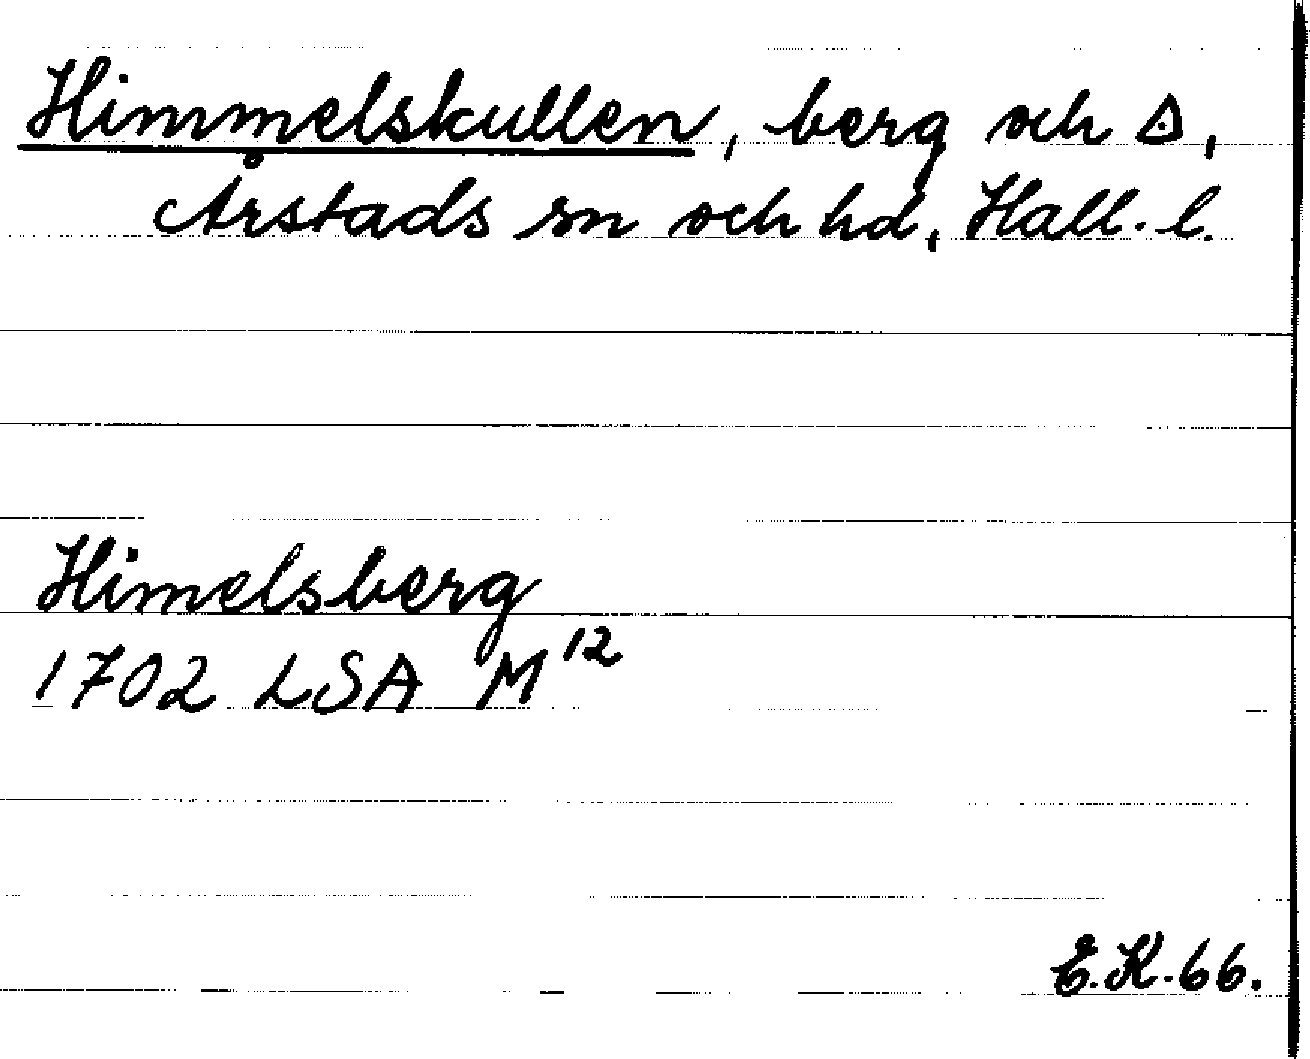 Himmelskullen, berg och △,
Årstads sn och hd, Hall. l.
Himelsberg
1702 LSA M12
E.K. 66.